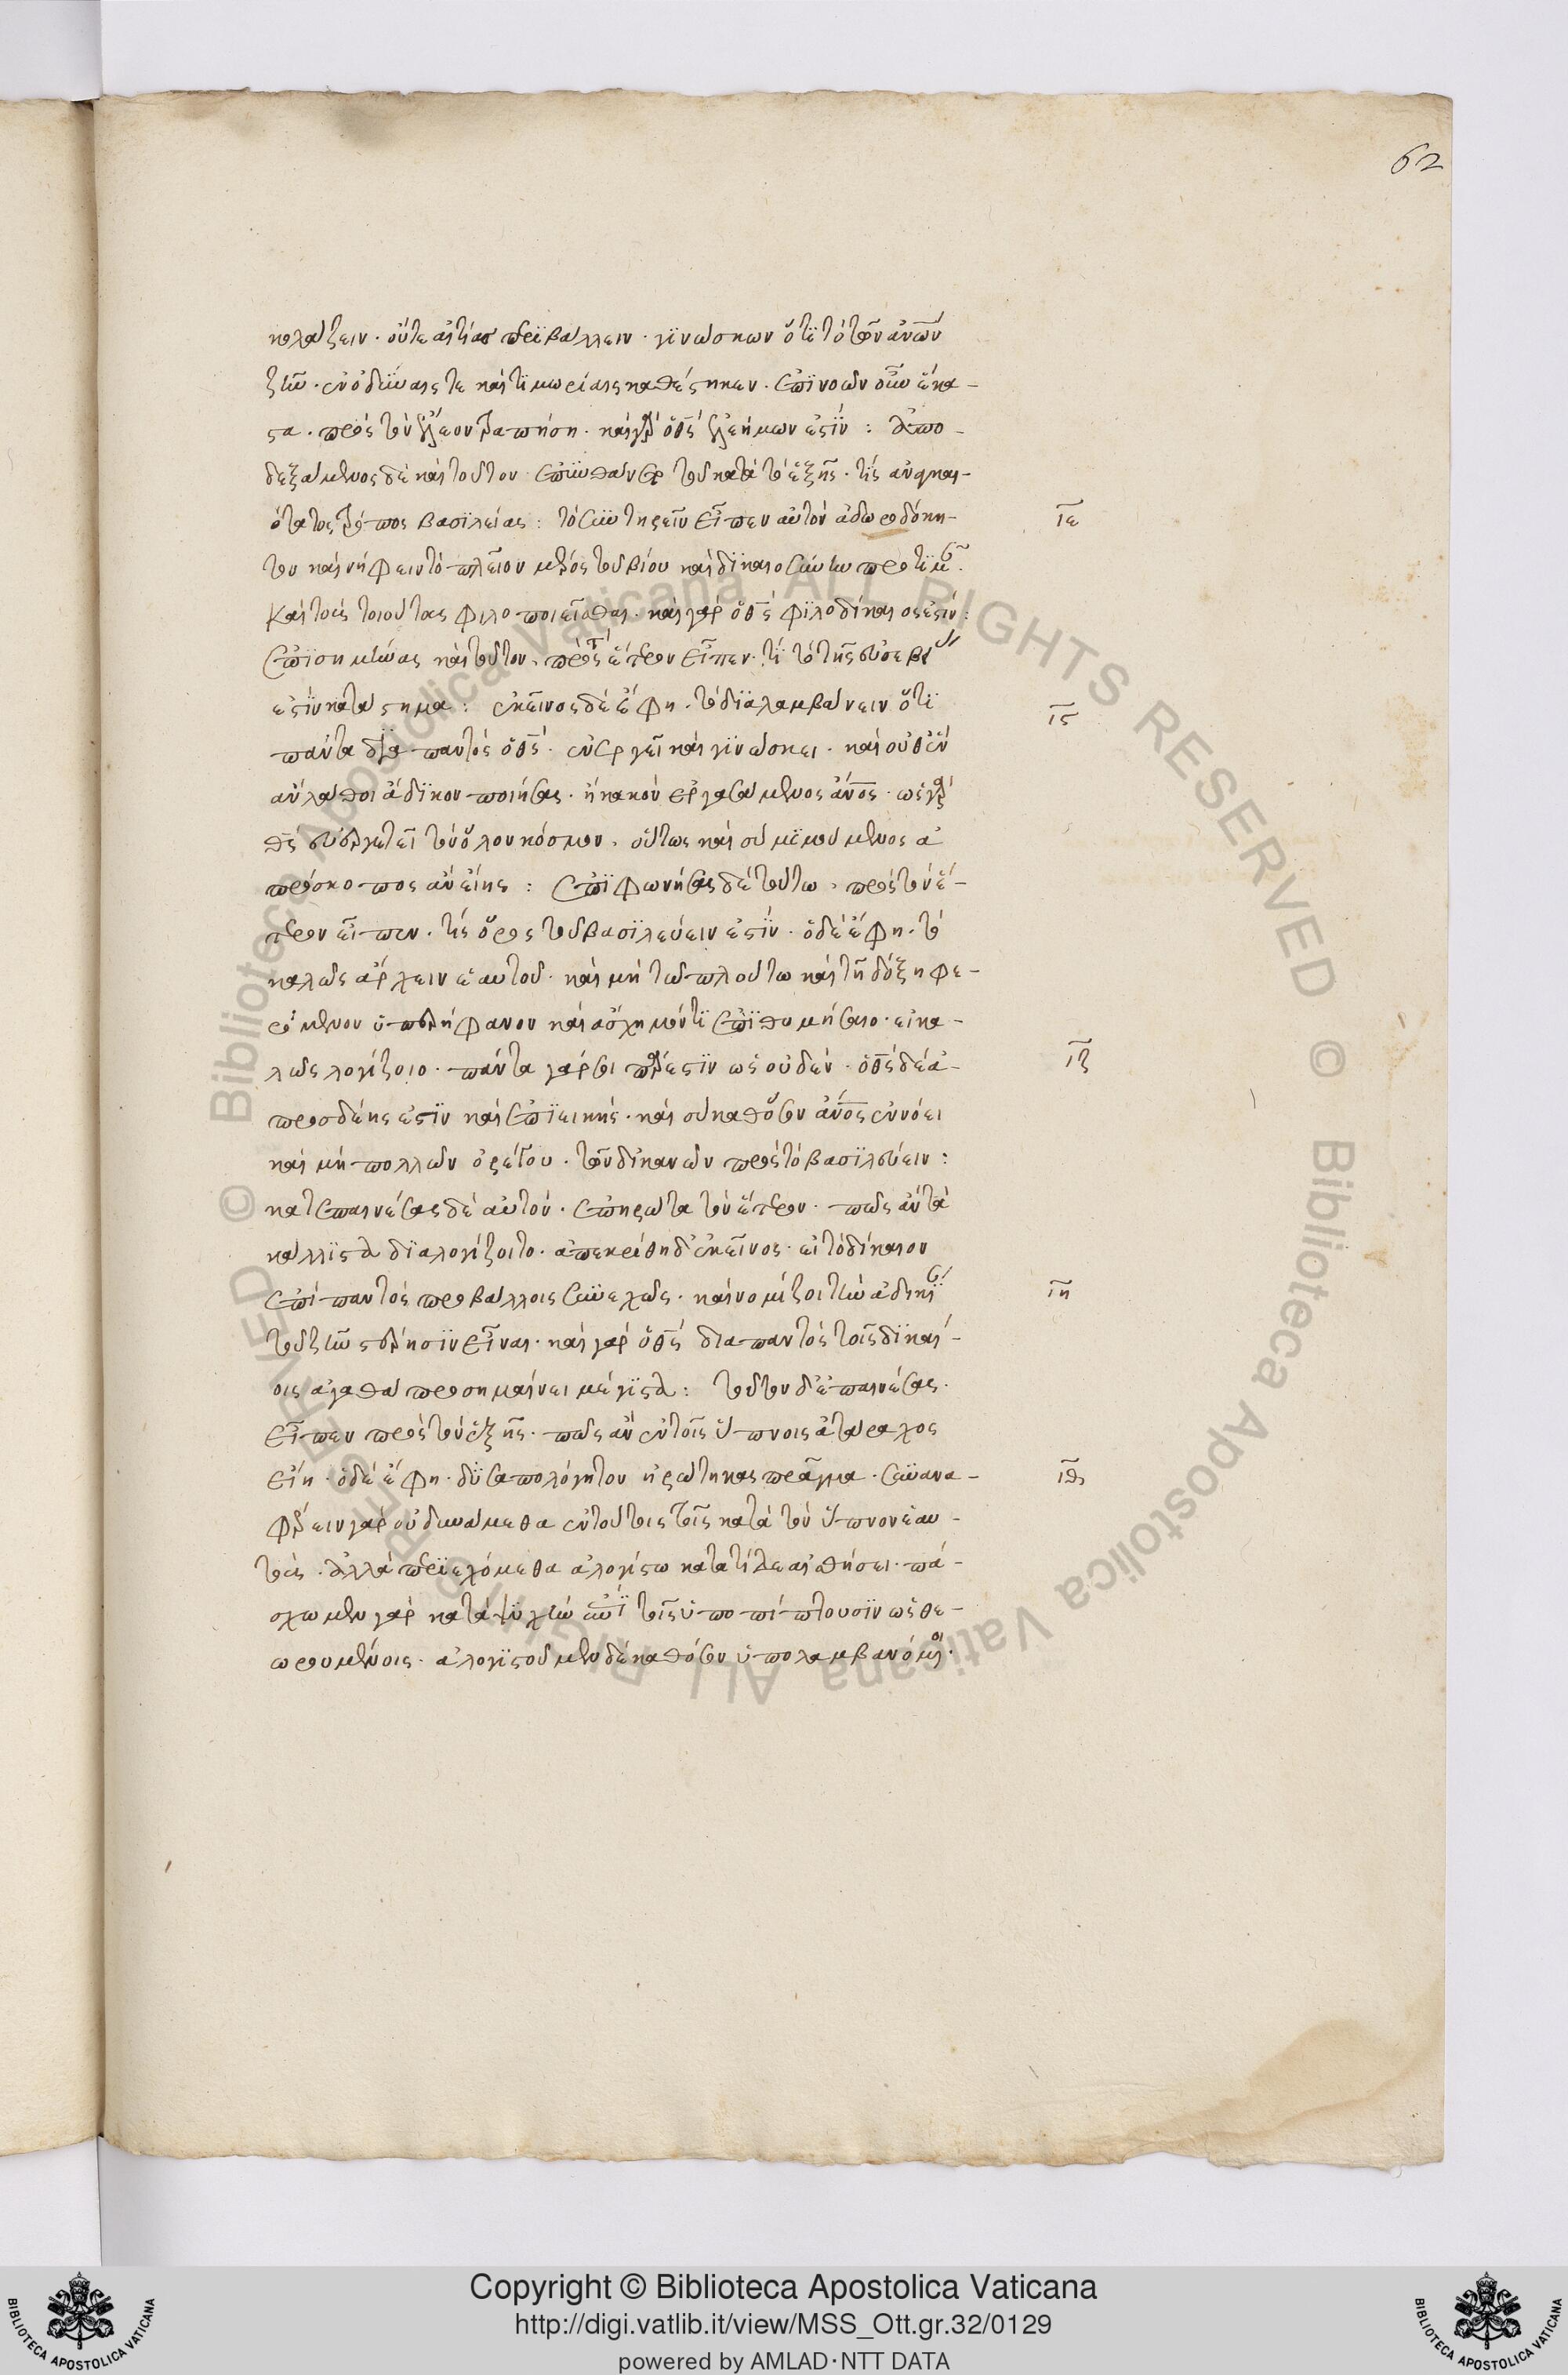 62
κολάζειν · οὔτε αἰκίαις περιβάλλειν · γινώσκων ὅτι τὸ τῶν ἀνων
ζῆν · ἐν ὀδύναις τε καὶ τιμωρίαις καθέστηκεν · ἐπινοῶν οὖν ἕκα-
στα · πρὸς τὸν ἔλεον τραπήση · καὶ γὰρ ὁ θς ἐλεήμων ἐστίν : Ἀπο-
δεξάμενος δὲ καὶ τοῦτον · ἐπυνθάνετο τοῦ κατὰ τὸ ἑξῆς · τίς ἀναγκαι-
ότατος τρόπος βασιλείας : τὸ συντηρεῖν εἶπεν αὐτὸν ἀδωροδόκη-
ιε
τον καὶ νήφειν τὸ πλεῖον μέρος τοῦ βίου καὶ δικαιοσύνην προτιμ
Καὶ τοὺς τοιούτους φιλοποιεῖσθαι · καὶ γὰρ ὁ θς φιλοδίκαιος ἐστίν :
Ἐπισημήνας καὶ τοῦτον · πρὸς τὸν ἕτερον εἶπεν · τί τὸ τῆς εὐσεβείας
ἐστὶν κατάστημα : ἐκεῖνος δὲ ἔφη · τὸ διαλαμβάνειν ὅτι
ις
πάντα διὰ παντὸς ὁ θς · ἐνεργεῖ καὶ γινώσκει · καὶ οὐθὲν
ἂν λάθοι ἄδικον ποιήσας · ἢ κακὸν ἐργασάμενος ἄνος · ὡς γὰρ
θς εὐεργετεῖ τὸν ὅλον κόσμον · οὕτως καὶ σὺ μιμούμενος ἀ
πρόσκοπος ἂν εἴης : Ἐπιφωνήσας δὲ τούτω · πρὸς τὸν ἕ-
τερον εἶπεν · τίς ὅρος τοῦ βασιλεύειν ἐστίν · ὁ δὲ ἔφη · τὸ
καλῶς ἄρχειν ἑαυτοῦ · καὶ μὴ τῶ πλούτω καὶ τῆ δόξη φε-
ρόμενον ὑπερήφανον καὶ ἄσχημόν τι ἐπιθυμήσαιο · εἰ κα-
λῶς λογίζοιο · πάντα γάρ σοι πάρεστιν ὡς οὐδέν · ὁ θς δὲ ἀ-
ιζ
προσδεής ἐστιν καὶ ἐπιεικής · καὶ σὺ καθόσον ἄνος ἐννόει
καὶ μὴ πολλῶν ὀρέγου · τῶν δὲ ἱκανῶν πρὸς τὸ βασιλεύειν :
κατεπαινέσας δὲ αὐτόν · ἐπηρώτα τὸν ἕτερον · πῶς ἂν τὰ
κάλλιστα διαλογίζοιτο · ἀπεκρίθη δ' ἐκεῖνος · εἰ τὸ δίκαιον
ἐπὶ παντὸς προβάλλοις συνεχῶς · καὶ νομίζοι τὴν ἀδικίαν
ιη
τοῦ ζῆν στέρησιν εἶναι · καὶ γὰρ ὁ θς διαπαντὸς τοῖς δικαί-
οις ἀγαθὰ προσημαίνει μέγιστα : τοῦτον δ' ἐπαινέσας ·
εἶπεν πρὸς τὸν ἑξῆς · πῶς ἂν ἐν τοῖς ὕπνοις ἀτάραχος
εἴη · ὁ δὲ ἔφη · δυσαπολόγητον ἠρώτηκας πρᾶγμα · συνανα-
ιθ
φέρειν γὰρ οὐ δυνάμεθα ἐν τούτοις τοῖς κατὰ τὸν ὕπνον ἑαυ-
τούς · ἀλλὰ περιεχόμεθα ἀλογίστω κατὰ τάδε αἰσθήσει · πά-
σχομεν γὰρ κατὰ ψυχὴν ἐπὶ τοῖς ὑποπίπτουσιν ὡς θε-
ωρουμένοις · ἀλογιστοῦμεν δὲ καθόσον ὑπολαμβάνομεν ·
Copyright © Biblioteca Apostolica Vaticana
http://digi.vatlib.it/view/MSS_Ott.gr.32/0129
powered by AMLAD·NTT DATA
© Biblioteca Apostolica Vaticana ALL RIGHTS RESERVED
© Biblioteca Apostolica Vaticana ALL RIGHTS RESERVED
BIBLIOTECA APOSTOLICA VATICANA
BIBLIOTECA APOSTOLICA VATICANA